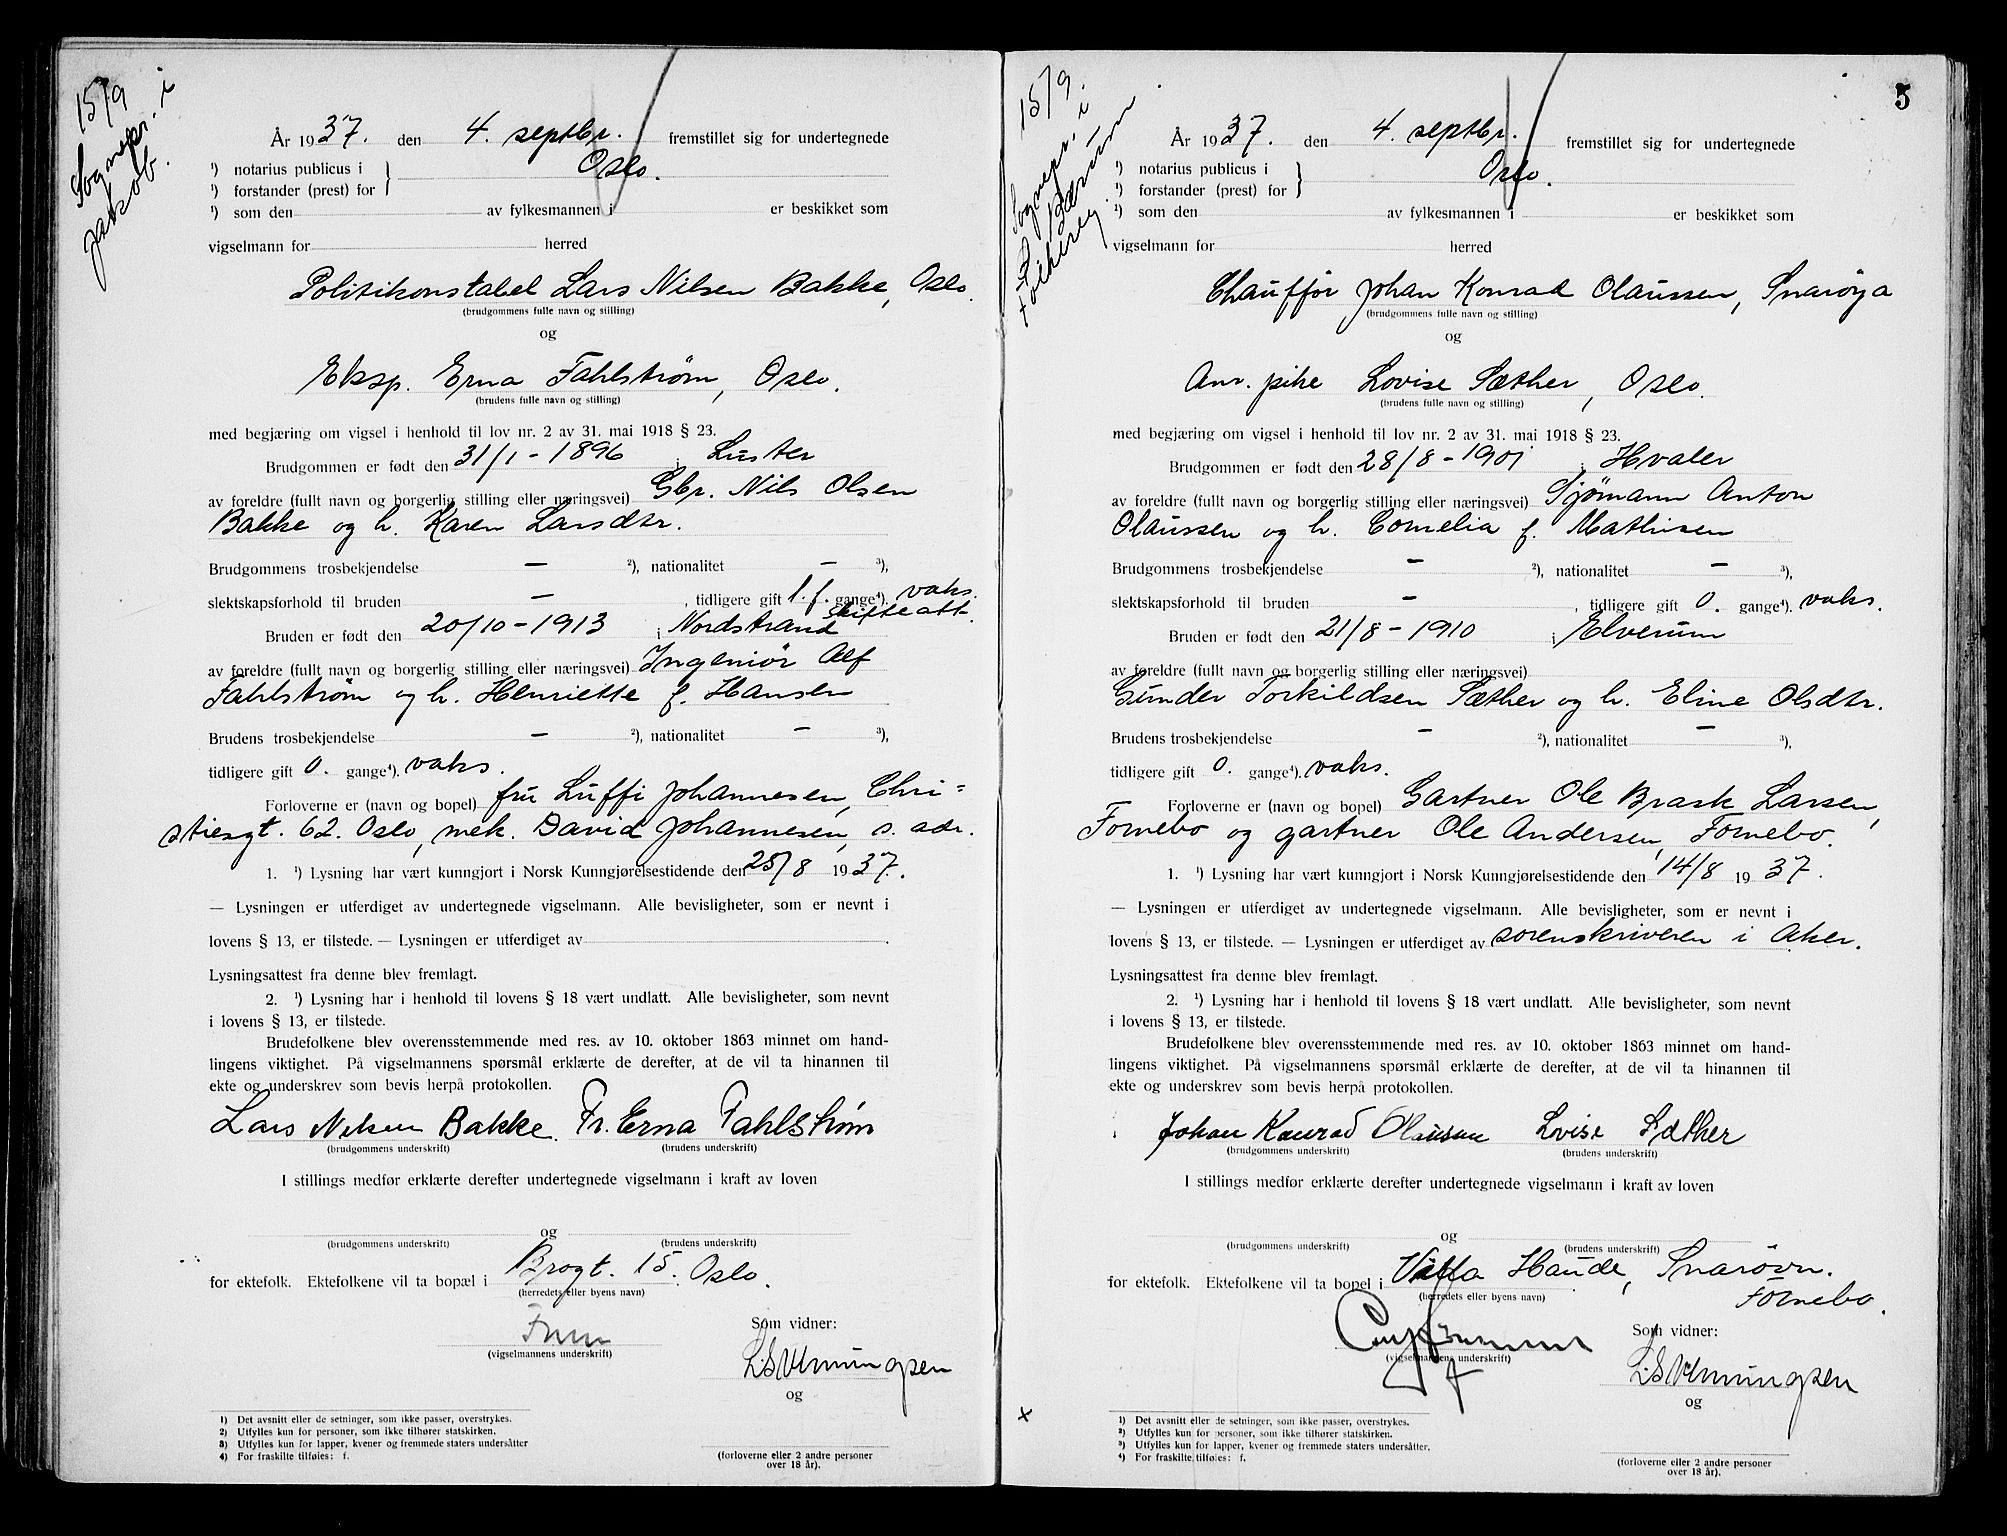 15/9
Sognepr. i
Jakob.
År 1937. den 4. septbr. fremstillet sig for undertegnede
¹) notarius publicus i } Oslo.
¹) forstander (prest) for
¹) som den av fylkesmannen i er beskikket som
vigselmann for herred
Politikonstabel Lars Nilsen Bakke, Oslo.
(brudgommens fulle navn og stilling)
og
Eksp. Erna Fahlstrøm, Oslo.
(brudens fulle navn og stilling)
med begjæring om vigsel i henhold til lov nr. 2 av 31. mai 1918 § 23.
Brudgommen er født den 31/1 - 1896 i Luster
av foreldre (fullt navn og borgerlig stilling eller næringsvei) Gbr. Nils Olsen
Bakke og h. Karen Larsdtr.
Brudgommens trosbekjendelse - ²), nationalitet - ³),
slektskapsforhold til bruden - , tidligere gift 1. f. gange⁴). vaks.
skifteatt.
Bruden er født den 20/10 - 1913 i Nordstrand
av foreldre (fullt navn og borgerlig stilling eller næringsvei) Ingeniør Alf
Fahlstrøm og h. Henriette f. Hansen
Brudens trosbekjendelse - ²), nationalitet - ³),
tidligere gift 0. gange⁴). vaks.
Forloverne er (navn og bopel) fru Luffi Johannesen, Chri=
stiesgt. 62. Oslo, mek. David Johannesen, s. adr.
1. ¹) Lysning har vært kunngjort i Norsk Kunngjørelsestidende den 25/8 1937.
— Lysningen er utferdiget av undertegnede vigselmann. Alle bevisligheter, som er nevnt i
lovens § 13, er tilstede. — Lysningen er utferdiget av .
Lysningsattest fra denne blev fremlagt.
2. ¹) Lysning har i henhold til lovens § 18 vært undlatt. Alle bevisligheter, som nevnt
i lovens § 13, er tilstede.
Brudefolkene blev overensstemmende med res. av 10. oktober 1863 minnet om hand-
lingens viktighet. På vigselmannens spørsmål erklærte de derefter, at de vil ta hinannen til
ekte og underskrev som bevis herpå protokollen.
Lars Nilsen Bakke. Fr. Erna Fahlstrøm
(brudgommens underskrift) (brudens underskrift)
I stillings medfør erklærte derefter undertegnede vigselmann i kraft av loven
og
(brudgommens underskrift) (brudens underskrift)
for ektefolk. Ektefolkene vil ta bopæl i Brogt. 15. Oslo.
(herredets eller byens navn)
Som vidner:
(vigselmannens underskrift)
og
1) Det avsnitt eller de setninger, som ikke passer, overstrykes.
2) Utfylles kun for personer, som ikke tilhører statskirken.
3) Utfylles kun for lapper, kvener og fremmede staters undersåtter
4) For fraskilte tilføies: f.
(forloverne eller 2 andre personer
over 18 år).
5
15/9.
Sognepr. i
Ø. Bærum
+ folkereg.
År 1937. den 4. septbr. fremstillet sig for undertegnede
¹) notarius publicus i } Oslo.
¹) forstander (prest) for
¹) som den av fylkesmannen i er beskikket som
vigselmann for herred
Chauffør Johan Konrad Olaussen, Snarøya
(brudgommens fulle navn og stilling)
og
Anr. pike Lovise Sæther, Oslo.
(brudens fulle navn og stilling)
med begjæring om vigsel i henhold til lov nr. 2 av 31. mai 1918 § 23.
Brudgommen er født den 28/8 - 1901 i Hvaler
av foreldre (fullt navn og borgerlig stilling eller næringsvei) Sjømann Anton
Olaussen og h. Cornelia f. Mathisen
Brudgommens trosbekjendelse - ²), nationalitet - ³),
slektskapsforhold til bruden - , tidligere gift 0. gange⁴). vaks.
Bruden er født den 21/8 - 1910 i Elverum
av foreldre (fullt navn og borgerlig stilling eller næringsvei)
Gunder Torkildsen Sæther og h. Eline Olsdtr.
Brudens trosbekjendelse - ²), nationalitet - ³),
tidligere gift 0. gange⁴). vaks.
Forloverne er (navn og bopel) Gartner Ole Brask Larsen,
Fornebo og gartner Ole Andersen, Fornebo.
1. ¹) Lysning har vært kunngjort i Norsk Kunngjørelsestidende den 14/8 1937.
— Lysningen er utferdiget av undertegnede vigselmann. Alle bevisligheter, som er nevnt i
lovens § 13, er tilstede. — Lysningen er utferdiget av sorenskriveren i Aker.
Lysningsattest fra denne blev fremlagt.
2. ¹) Lysning har i henhold til lovens § 18 vært undlatt. Alle bevisligheter, som nevnt
i lovens § 13, er tilstede.
Brudefolkene blev overensstemmende med res. av 10. oktober 1863 minnet om hand-
lingens viktighet. På vigselmannens spørsmål erklærte de derefter, at de vil ta hinannen til
ekte og underskrev som bevis herpå protokollen.
Johan Konrad Olaussen Lovise Sæther
(brudgommens underskrift) (brudens underskrift)
I stillings medfør erklærte derefter undertegnede vigselmann i kraft av loven
og
(brudgommens underskrift) (brudens underskrift)
for ektefolk. Ektefolkene vil ta bopel i Villa Haude, Snarøvn.
(herredets eller byens navn) Fornebo.
Som vidner:
(vigselmannens underskrift)
og
x
¹) Det avsnitt eller de setninger, som ikke passer, overstrykes.
²) Utfylles kun for personer, som ikke tilhører statskirken.
³) Utfylles kun for lapper, kvener og fremmede staters undersåtter.
⁴) For fraskilte tilføies: f.
(forloverne eller 2 andre personer
over 18 år).